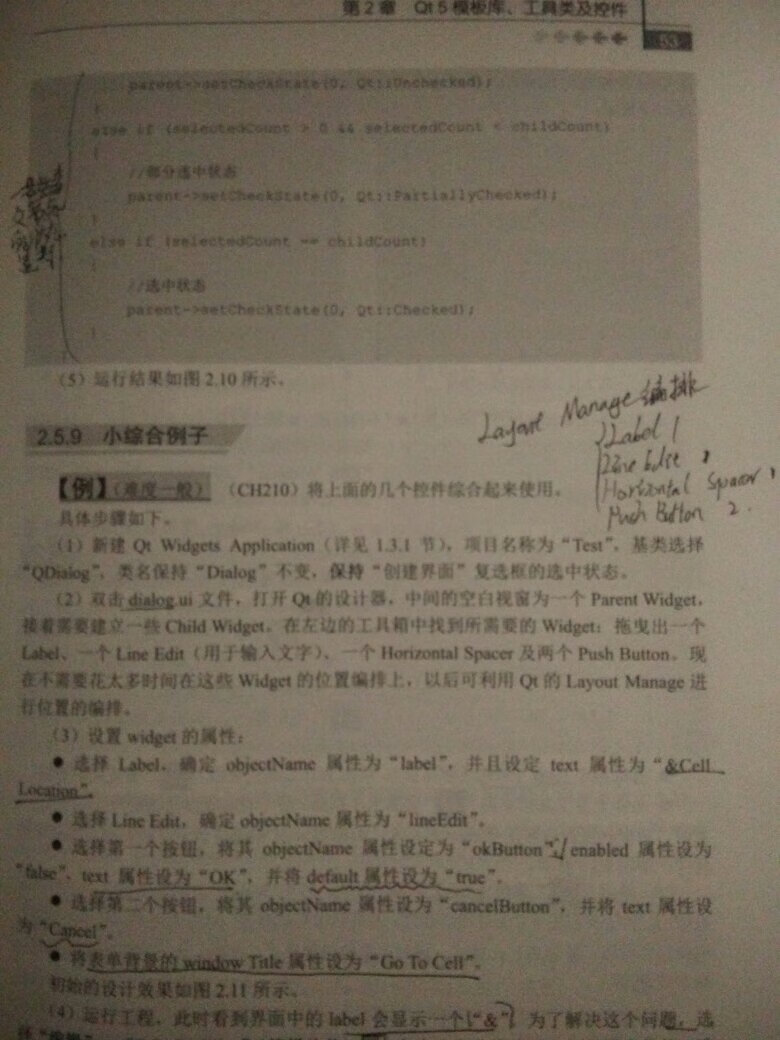 第2章 Qt 5模板库、工具类及控件
53
parent->setCheckState(0, Qt::Unchecked);
}
else if (selectedCount > 0 && selectedCount < childCount)
{
//部分选中状态
parent->setCheckState(0, Qt::PartiallyChecked);
}
else if (selectedCount == childCount)
{
//选中状态
parent->setCheckState(0, Qt::Checked);
}
(5)运行结果如图2.10所示。
Layout Manage 编排
Label 1
Line Edit 1
Horizontal Spacer 1
Push Button 2.
2.5.9 小综合例子
【例】(难度一般)(CH210)将上面的几个控件综合起来使用。
具体步骤如下。
(1)新建 Qt Widgets Application(详见 1.3.1 节),项目名称为“Test”,基类选择
“QDialog”,类名保持“Dialog”不变,保持“创建界面”复选框的选中状态。
(2)双击 dialog.ui 文件,打开 Qt 的设计器,中间的空白视窗为一个 Parent Widget,
接着需要建立一些 Child Widget。在左边的工具箱中找到所需要的 Widget:拖曳出一个
Label、一个 Line Edit(用于输入文字)、一个 Horizontal Spacer 及两个 Push Button。现
在不需要花太多时间在这些 Widget 的位置编排上,以后可利用 Qt 的 Layout Manage 进
行位置的编排。
(3)设置 widget 的属性:
● 选择 Label,确定 objectName 属性为“label”,并且设定 text 属性为“&Cell
Location”。
● 选择 Line Edit,确定 objectName 属性为“lineEdit”。
● 选择第一个按钮,将其 objectName 属性设定为“okButton”,enabled 属性设为
“false”,text 属性设为“OK”,并将 default 属性设为“true”。
● 选择第二个按钮,将其 objectName 属性设为“cancelButton”,并将 text 属性设
为“Cancel”。
● 将表单背景的 window Title 属性设为“Go To Cell”。
初始的设计效果如图 2.11 所示。
(4)运行工程,此时看到界面中的 label 会显示一个“&”。为了解决这个问题,选